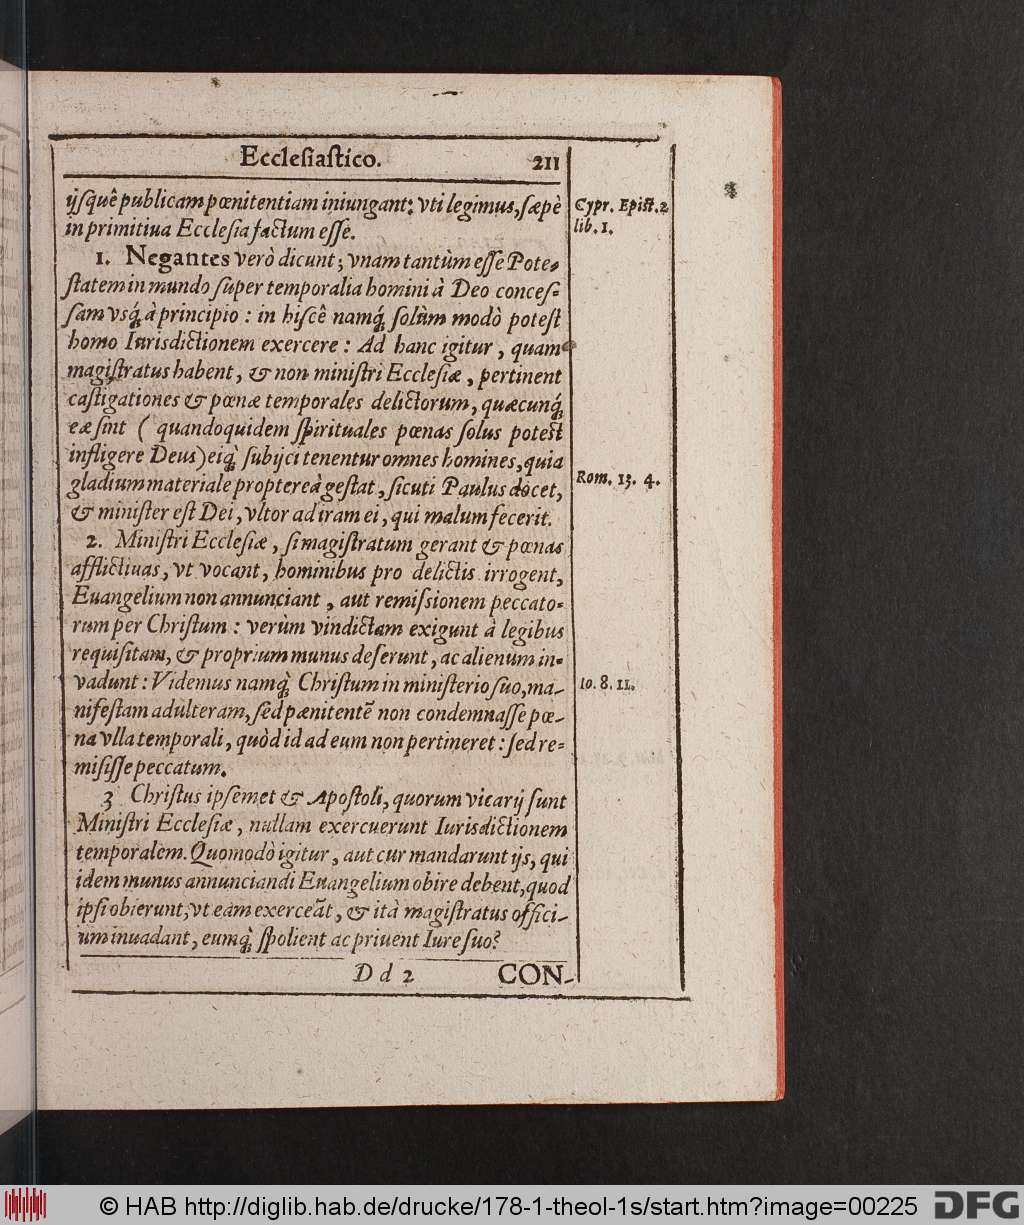 Ecclesiastico. 211
ijsquê publicam pœnitentiam iniungant: vti legimus, sæpè
Cypr. Epist. 2
in primitiua Ecclesia factum esse.
lib. 1.
1. Negantes verò dicunt; vnam tantùm esse Pote-
statem in mundo super temporalia homini à Deo conces-
sam vsq́; à principio : in hiscê namq́; solùm modò potest
homo Iurisdictionem exercere : Ad hanc igitur, quam
magistratus habent, & non ministri Ecclesiæ, pertinent
castigationes & pœnæ temporales delictorum, quæcunq́;
eæ sint ( quandoquidem spirituales pœnas solus potest
infligere Deus) eiq̀; subijci tenentur omnes homines, quia
gladium materiale proptereà gestat, sicuti Paulus docet,
Rom. 13. 4.
& minister est Dei, vltor ad iram ei, qui malum fecerit.
2. Ministri Ecclesiæ, si magistratum gerant & pœnas
afflictiuas, vt vocant, hominibus pro delictis irrogent,
Euangelium non annunciant, aut remissionem peccato-
rum per Christum : verùm vindictam exigunt à legibus
requisitam, & proprium munus deserunt, ac alienum in-
vadunt : Videmus namq̀; Christum in ministerio suo, ma-
Io. 8. 11.
nifestam adulteram, sed pænitentē non condemnasse pœ-
na vlla temporali, quòd id ad eum non pertineret : sed re-
misisse peccatum.
3 Christus ipsemet & Apostoli, quorum vicarij sunt
Ministri Ecclesiæ, nullam exercuerunt Iurisdictionem
temporalem. Quomodò igitur, aut cur mandarunt ijs, qui
idem munus annunciandi Euangelium obire debent, quod
ipsi obierunt, vt eam exerceāt, & ità magistratus offici-
um inuadant, eumq̀; spolient ac priuent Iure suo?
D d 2 CON-
© HAB http://diglib.hab.de/drucke/178-1-theol-1s/start.htm?image=00225 DFG